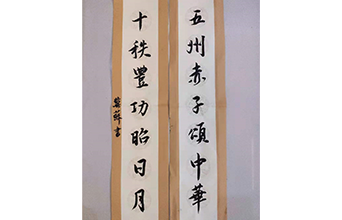 五州赤子頌中華
十秩豐功昭日月